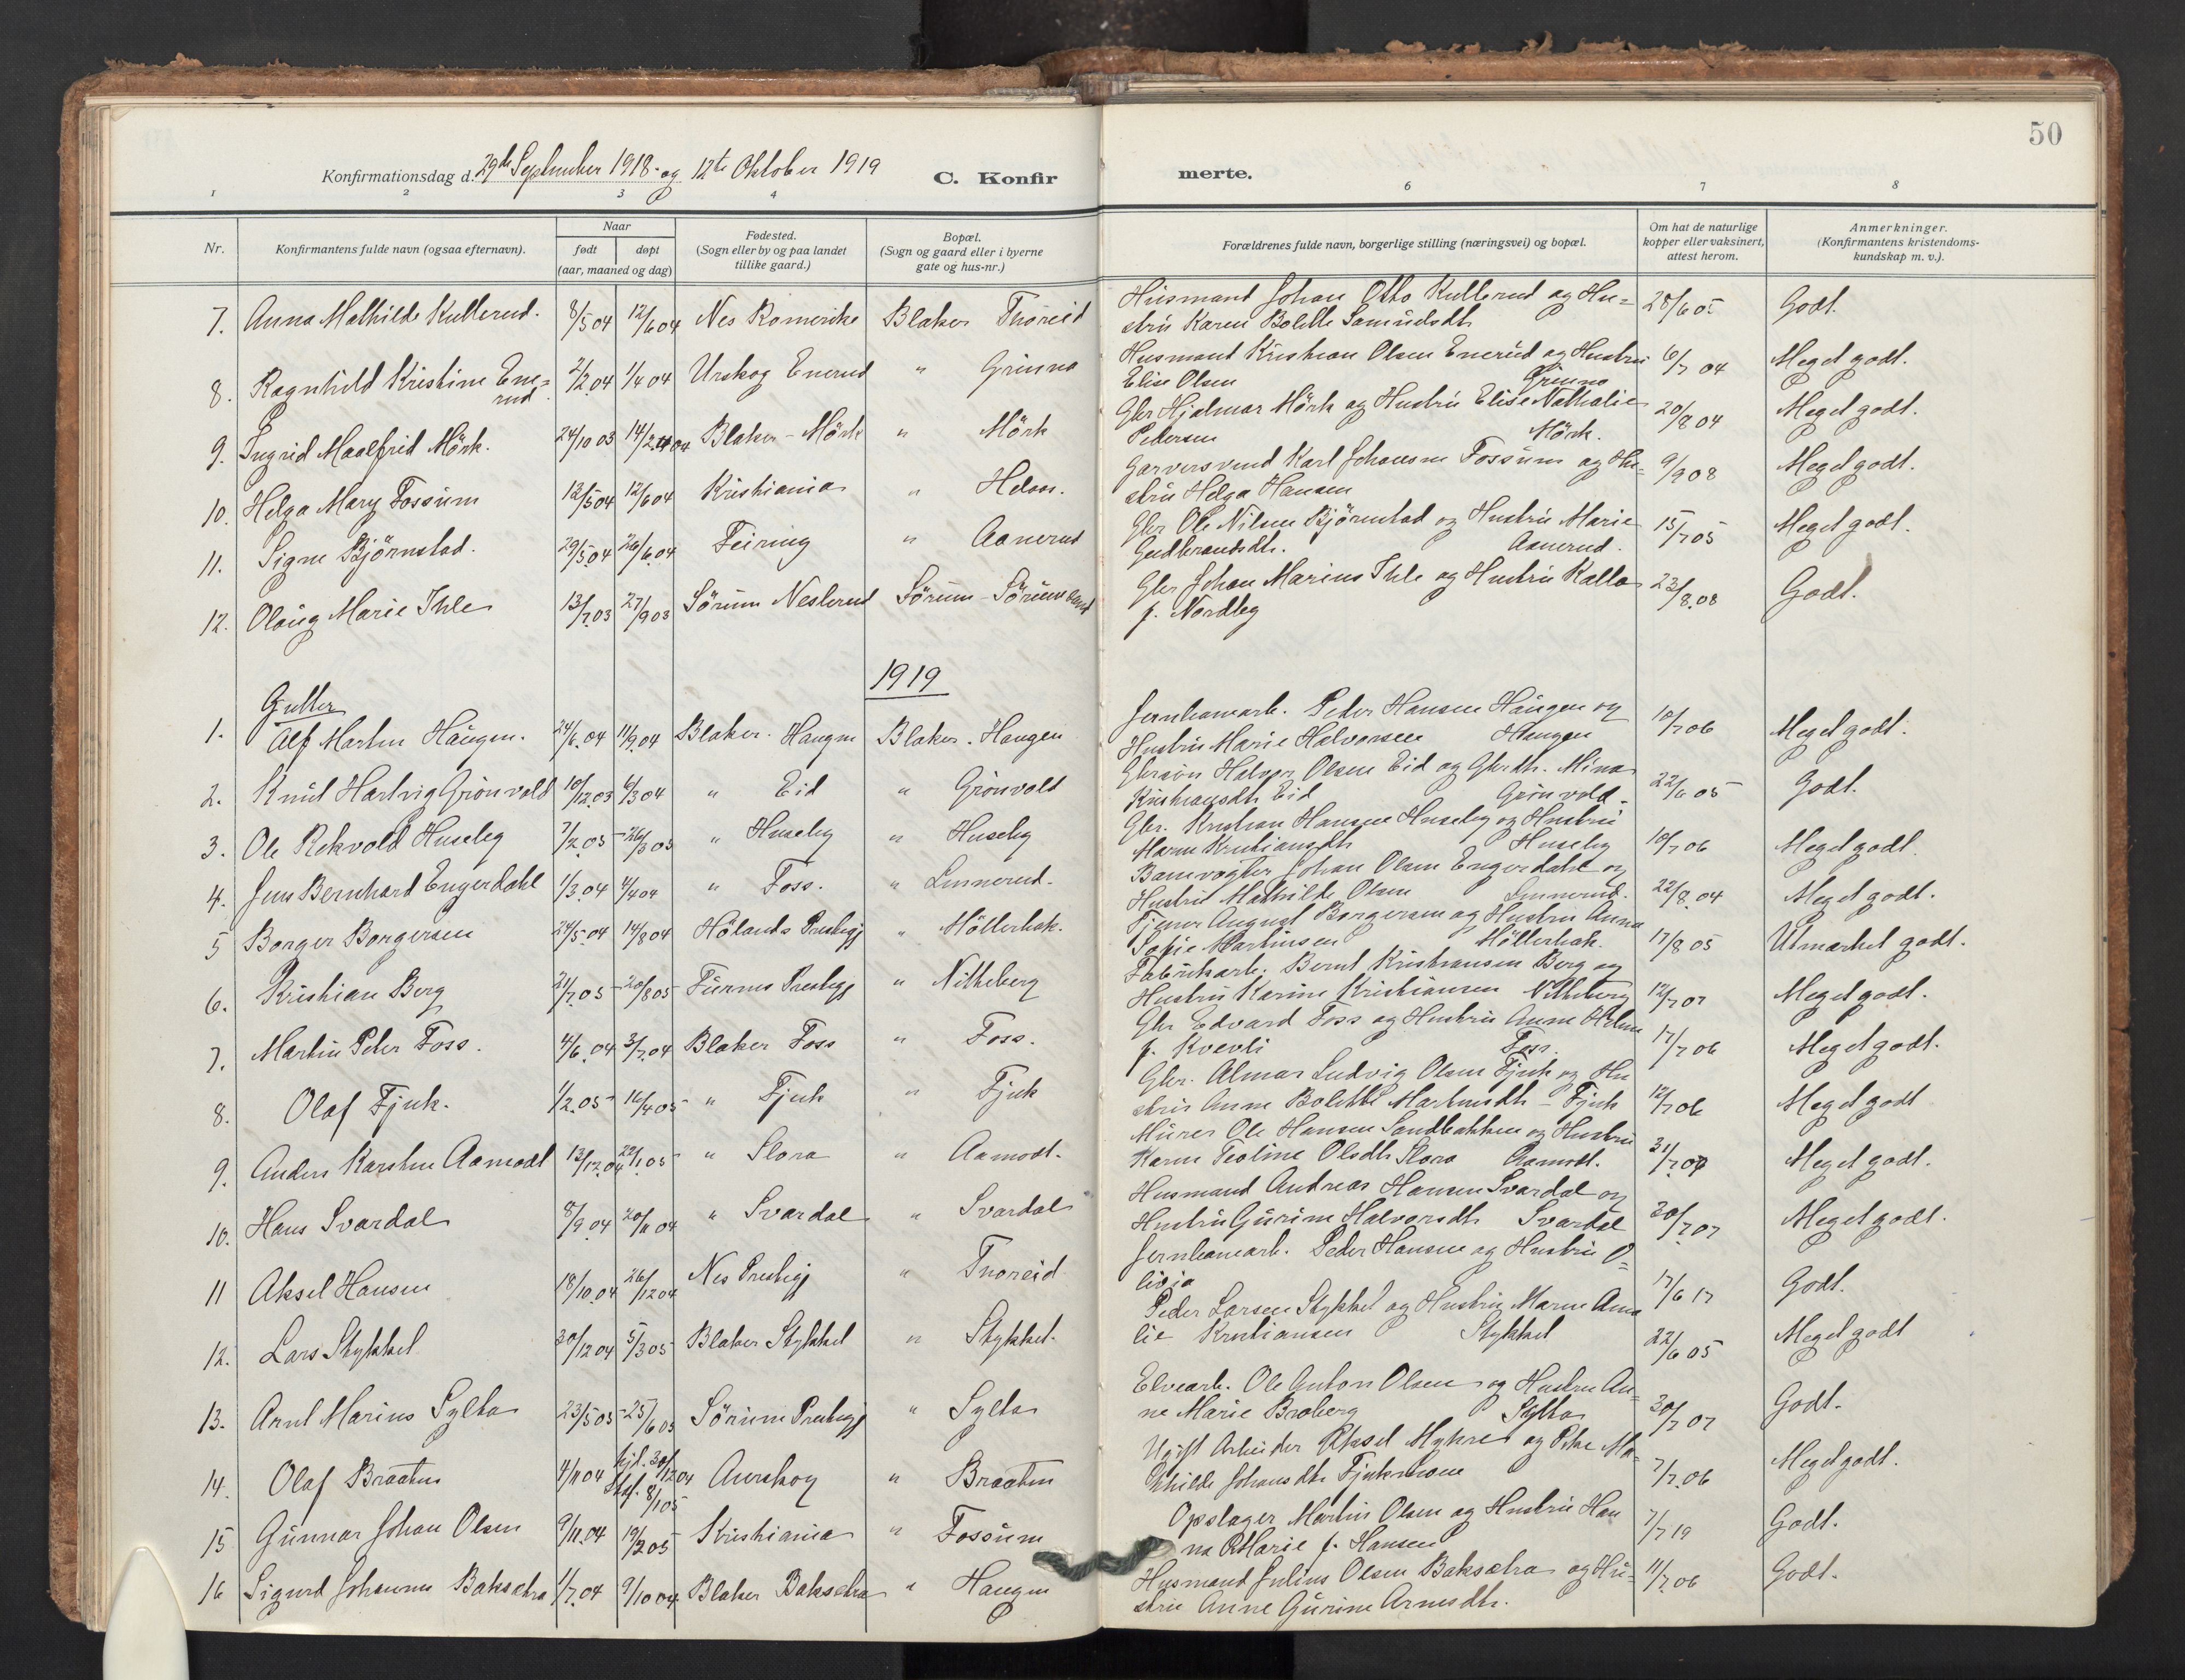 50
Konfirmationsdag d. 29de September 1918 og 12te Oktober 1919 C. Konfir merte.
1 2 3 4 6 7 8
Nr. Konfirmantens fulde navn (ogsaa efternavn). Naar født døpt (aar, maaned og dag) Fødested. (Sogn eller by og paa landet tillike gaard.) Bopæl. (Sogn og gaard eller i byerne gate og hus-nr.) Forældrenes fulde navn, borgerlige stilling (næringsvei) og bopæl. Om hat de naturlige kopper eller vaksinert, attest herom. Anmerkninger. (Konfirmantens kristendoms-kundskap m. v.).
7. Anna Mathilde Kullerud. 8/5 04 12/6 04 Nes Romerike Blaker Tnoreid Husmand Johan Otto Kullerud og Hu= 28/6 05 Godt.
stru Karen Bolette Samuelsdtr
8. Ragnhild Kristine Ene= 2/2 04 1/4 04 Urskog Enerud " Grinna Husmand Kristian Olsen Enerud og Hustru 6/7 04 Meget godt.
rud. Elise Olsen Grinna
9. Ingrid Maalfrid Mörk. 24/10 03 14/2 04 Blaker - Mörk " Mörk Gbr Hjalmar Mörk og Hustru Elise Nathalie 20/8 04 Meget godt.
Petersen Mörk.
10. Helga Mary Fossum 12/5 04 12/6 04 Kristiania " Garversvend Karl Johansen Fossum og Hu= 9/9 08 Meget godt.
stru Helga Hansen
11. Signe Björnstad. 29/5 04 26/6 04 Feiring " Aanerud Gbr Ole Nilsen Björnstad og Hustru Marie 15/7 05 Meget godt.
Gudbrandsdtr. Aanerud.
12. Olaug Marie Ihle 13/7 03 27/9 03 Sörum Neslerud Sörum - Sörumsand Gbr Johan Marius Ihle og Hustru Kalla 23/8 08 Godt.
f. Nordby
1919
Gutter
1. Alf Martin Haugen. 24/6 04 11/9 04 Blaker. Haugen Blaker. Haugen Jernbanearb. Peder Hansen Haugen og 10/7 06 Meget godt.
Hustru Marie Halvorsen Haugen
2. Knut Hartvig Grönvold 10/12 03 6/3 04 " Eid " Grönvold Gbrsön Halvor Olsen Eid og Gbrdtr. Mina 22/6 05 Godt.
Kristiansdtr Eid Grönvold.
3. Ole Rekvold Huseby 7/2 05 26/3 05 " Huseby " Huseby Gbr. Kristian Hansen Huseby og Hustru 10/7 06 Meget godt.
Maren Kristiansdtr Huseby
4. Jens Bernhard Engerdahl 1/3 04 4/4 04 " Foss. " Linnerud. Banevogter Johan Olsen Engerdahl og 22/8 04 Meget godt.
Hustru Mathilde Olsen Linnerud.
5 Borger Borgersen 24/5 04 14/8 04 Hölands Prestegj " Möllerbak. Tjener August Borgersen og Hustru Anna 17/8 05 Utmærket godt.
Sofie Martinsen Möllerbak.
6. Kristian Berg 24/7 05 20/8 05 Furnes Prestegj " Nitteberg Fabrikarb. Bernt Kristiansen Berg og 12/7 07 Meget godt.
Hustru Karine Kristiansen Nitteberg
7. Martin Peter Foss. 4/6 04 3/7 04 Blaker Foss " Foss. Gbr Edvard Foss og Hustru Anne Helene 17/7 06 Meget godt.
f. Kvevli Foss.
8. Olaf Fjuk. 1/2 05 16/4 05 " Fjuk " Fjuk Gbr. Almar Ludvig Olsen Fjuk og Hu 12/7 06 Meget godt
stru Anne Bolette Martinsdtr - Fjuk
9. Anders Karsten Aamodt 13/12 04 22/1 05 " Slora " Aamodt. Murer Ole Hansen Sandbakken og Hustru 31/7 07 Meget godt.
Karen Teoline Olsdtr Slora Aamodt.
10. Hans Svardal 8/9 04 20/11 04 " Svardal " Svardal Husmand Andreas Hansen Svardal og 30/7 07 Meget godt.
Hustru Gurine Halvorsdtr Svardal
11 Aksel Hansen 18/10 04 26/12 04 Nes Prestegj " Tnoreid Jernbanearb. Peder Hansen og Hustru O= 17/6 17 Godt.
livia
12. Lars Stykket 30/12 04 5/3 05 Blaker Stykket " Stykket. Peder Larsen Stykket og Hustru Maren Ama 22/6 05 Meget godt
lie Kristiansen Stykket
13. Arnt Marius Sylta 23/5 05 25/6 05 Sörum Prestegj " Sylta Elvearb. Ole Anton Olsen og Hustru An= 30/7 07 Godt.
ne Marie Broberg Sylta
14. Olaf Braaten 4/11 04 hjd. 30/12 04 Aurskog " Braaten Ugift Arbeider Aksel Mykre og Pike Ma= 7/7 06 Meget godt.
Stf. 8/1 05 thilde Johansdtr Fjukmoen
15 Gunnar Johan Olsen 9/11 04 19/2 05 Kristiania " Fossum Opslager Martin Olsen og Hustru Han 7/7 19 Godt.
na Marie f. Hansen
16 Sigurd Johannes Baksætra 1/7 04 9/10 04 Blaker Baksætra " Haugen Husmand Julius Olsen Baksætra og Hu= 11/7 06 Godt.
stru Anne Gurine Arnesdtr.